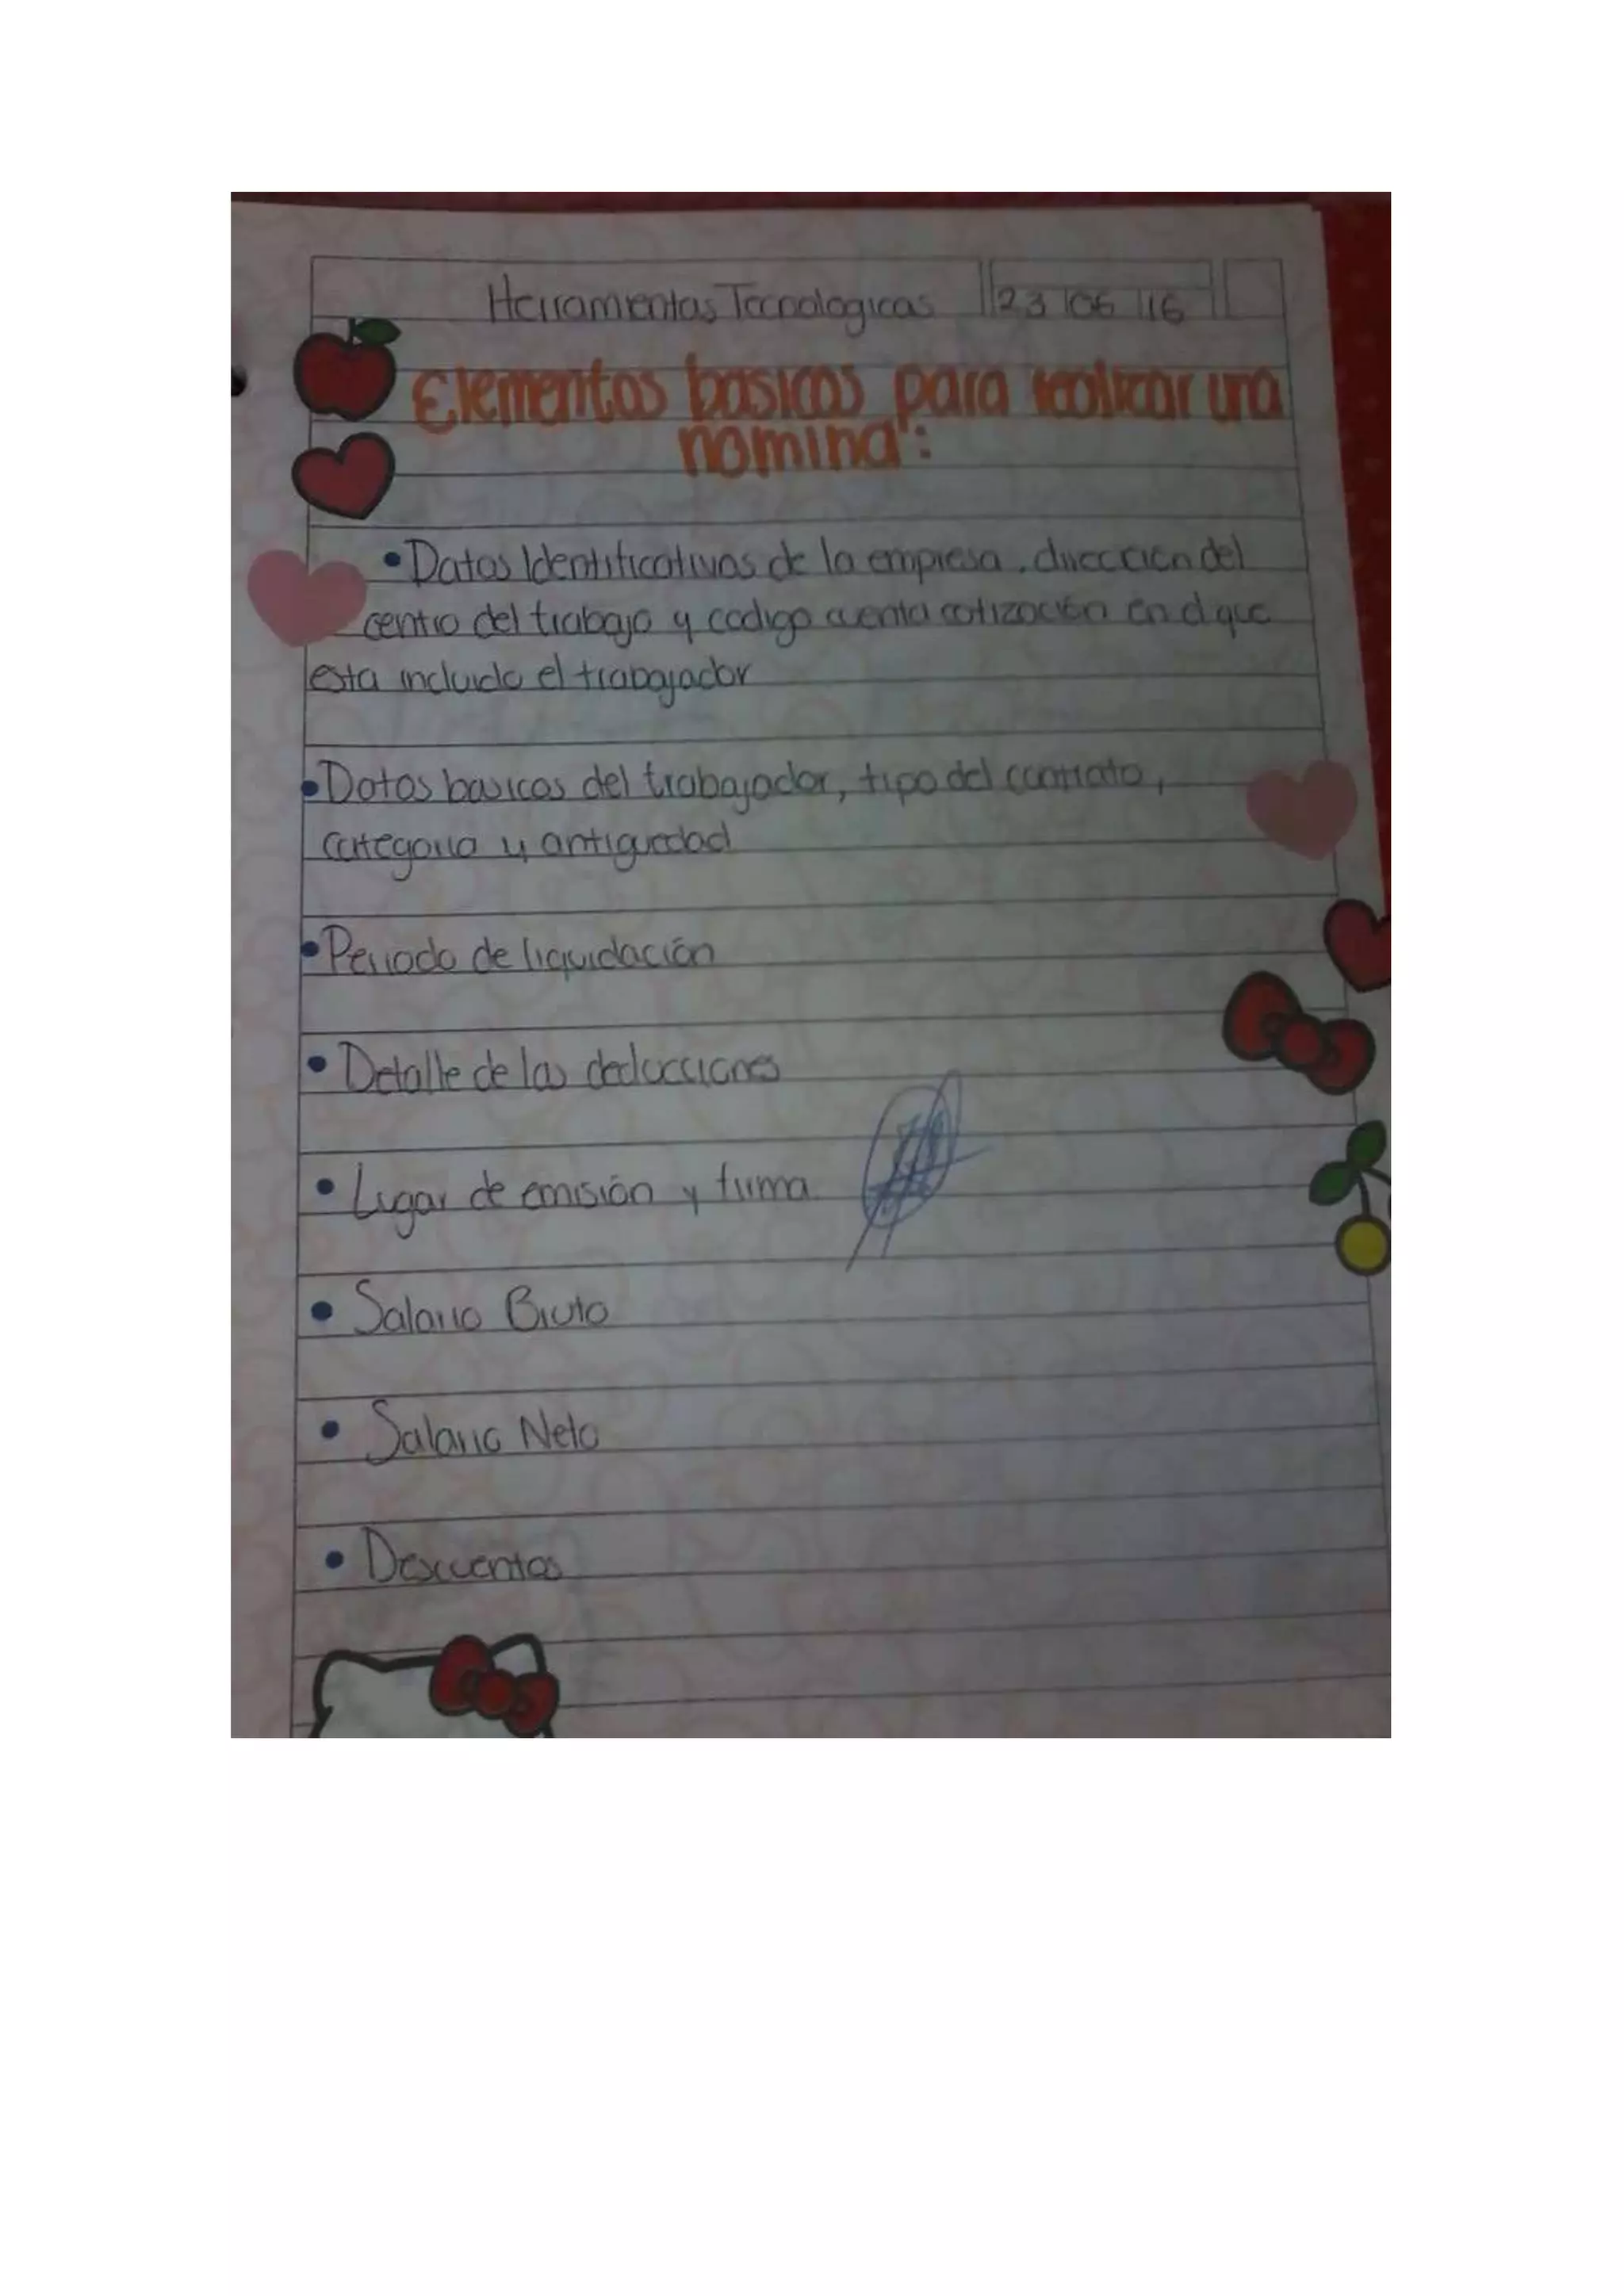 Herramientas Tecnologicas 23 06 16
Elementos basicos para realizar una
nomina:
• Datos Identificativos de la empresa, direccion del
centro del trabajo y codigo cuenta cotización en el que
esta incluido el trabajador
• Datos basicos del trabajador, tipo del contrato,
categoria y antiguedad
• Periodo de liquidación
• Detalle de las deducciones
• Lugar de emisión y firma
• Salario Bruto
• Salario Neto
• Descuentos